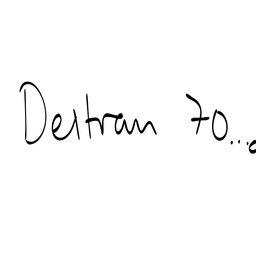 Dextran 70...